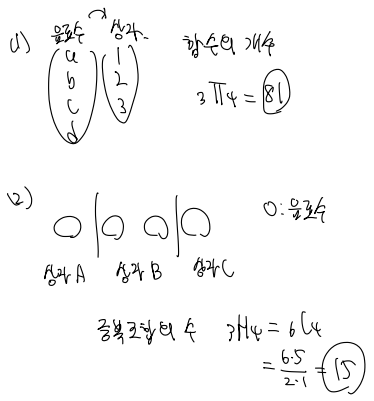 (1) 음료수 → 상자
a 1
b 2
c 3
d
함수의 개수
₃Π₄ = 81
(2)
O | O O | O
O : 음료수
상자 A 상자 B 상자 C
중복조합의 수 ₃H₄ = ₆C₄
= 6·5 / 2·1 = 15